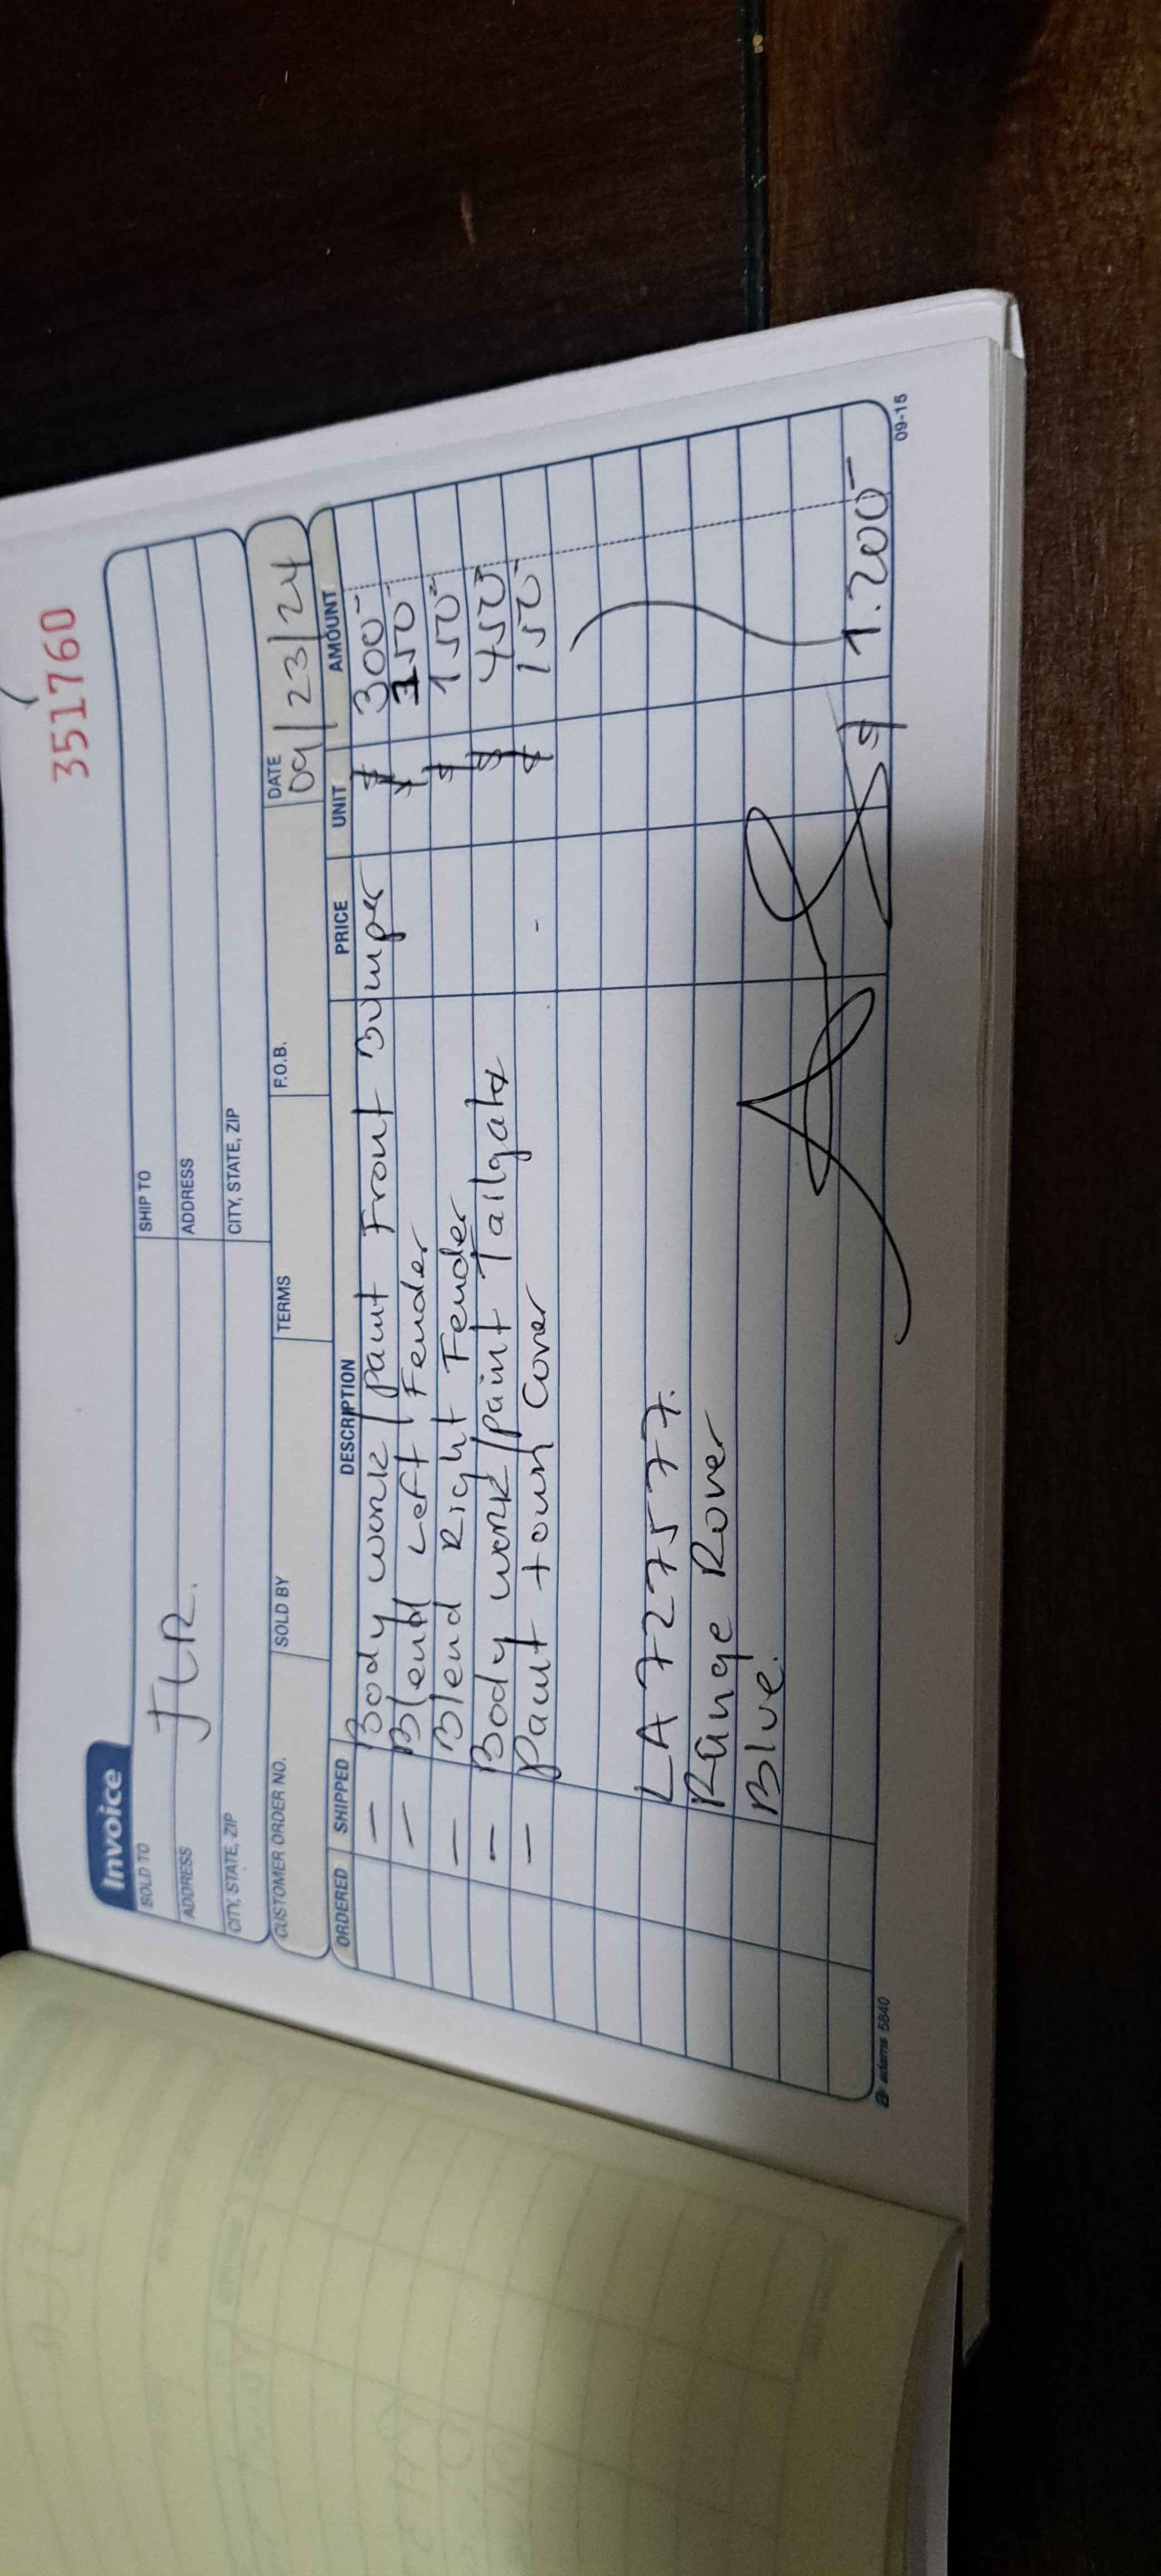 351760
Invoice
SOLD TO JLR. SHIP TO
ADDRESS ADDRESS
CITY, STATE, ZIP CITY, STATE, ZIP
CUSTOMER ORDER NO. SOLD BY TERMS F.O.B. DATE 09/23/24
ORDERED SHIPPED DESCRIPTION PRICE UNIT AMOUNT
– Body work/paint Front Bumper $ 300-
– Blend Left Fender $ 150-
– Blend Right Fender $ 150-
– Body work/paint Tailgate $ 450
– Paint town Cover $ 150-
LA727577.
Range Rover
Blue.
$ 1.200-
adams 5840 09-15